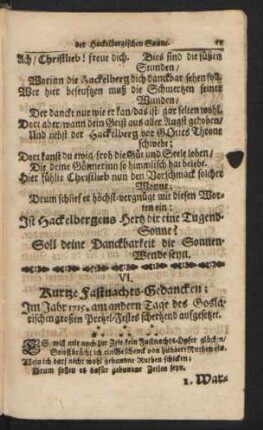 der Hackelbergischen Sonne.
Ach/ Christlieb! freue dich. Dies sind die süssen
Stunden/
Worinn die Hackelberg dich danckbar sehen soll.
Wer hier beseufzen muß die Schmertzen seiner
Wunden/
Der danckt nur wie er kan/das ist: gar selten wohl.
Dort aber/wann dein Geist aus aller Angst gehoben/
Und nebst der Hackelberg vor GOttes Throne
schwebt;
Dort kanst du ewig/froh die Güt und Seele loben/
Die deine Gönnerinn so himmlisch hat belebt.
Hier fühlte Christlieb nun den Vorschmack solcher
Wonne;
Drum schlief er höchst-vergnügt mit diesen Wor-
ten ein:
Ist Hackelbergens Hertz dir eine Tugend-
Sonne?
Soll deine Danckbarkeit die Sonnen-
Wende seyn.
VI.
Kurtze Fastnachts-Gedancken;
Im Jahr 1715. am andern Tage des
rischen großen Pretzel-Festes schertzend aufgesetzet.
ES will mir noch zur Zeit kein Fastnachts-Opfer glücken/
Sonst brächt ich ein Geschenck von
Weil ich darf nicht wohl gebundne Ruthen schicken;
Drum sollen es dafür gebundne Zeilen seyn.
1. War-